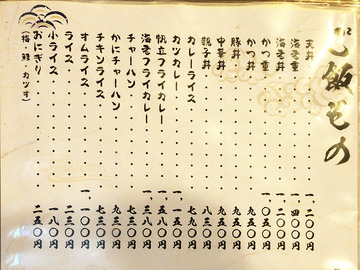 ご飯もの
天丼・・・・・・・一、二〇〇円
海老重・・・・・・・一、四〇〇円
海老丼・・・・・・・一、二〇〇円
かつ重・・・・・・・一、〇五〇円
かつ丼・・・・・・・九五〇円
豚丼・・・・・・・九五〇円
中華丼・・・・・・・九五〇円
親子丼・・・・・・・八三〇円
カレーライス・・・・・・・七九〇円
カツカレー・・・・・・・一、一五〇円
帆立フライカレー・・・・・一、五八〇円
海老フライカレー・・・・・一、三八〇円
チャーハン・・・・・・・七三〇円
かにチャーハン・・・・・・九三〇円
チキンライス・・・・・・・七三〇円
オムライス・・・・・・・一、一〇〇円
ライス・・・・・・・二三〇円
小ライス・・・・・・・一五〇円
おにぎり・・・・・・・二五〇円
(梅・鮭・カツオ)